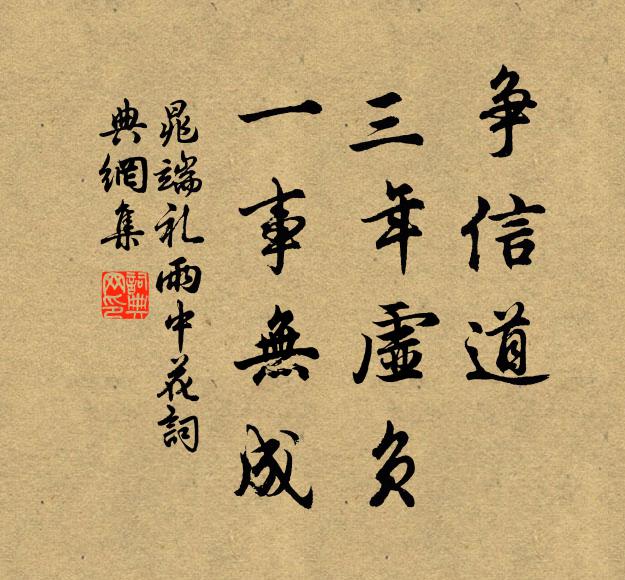 争信道
三年虚负
一事無成
晁端礼雨中花詞
典網集
詞典網印